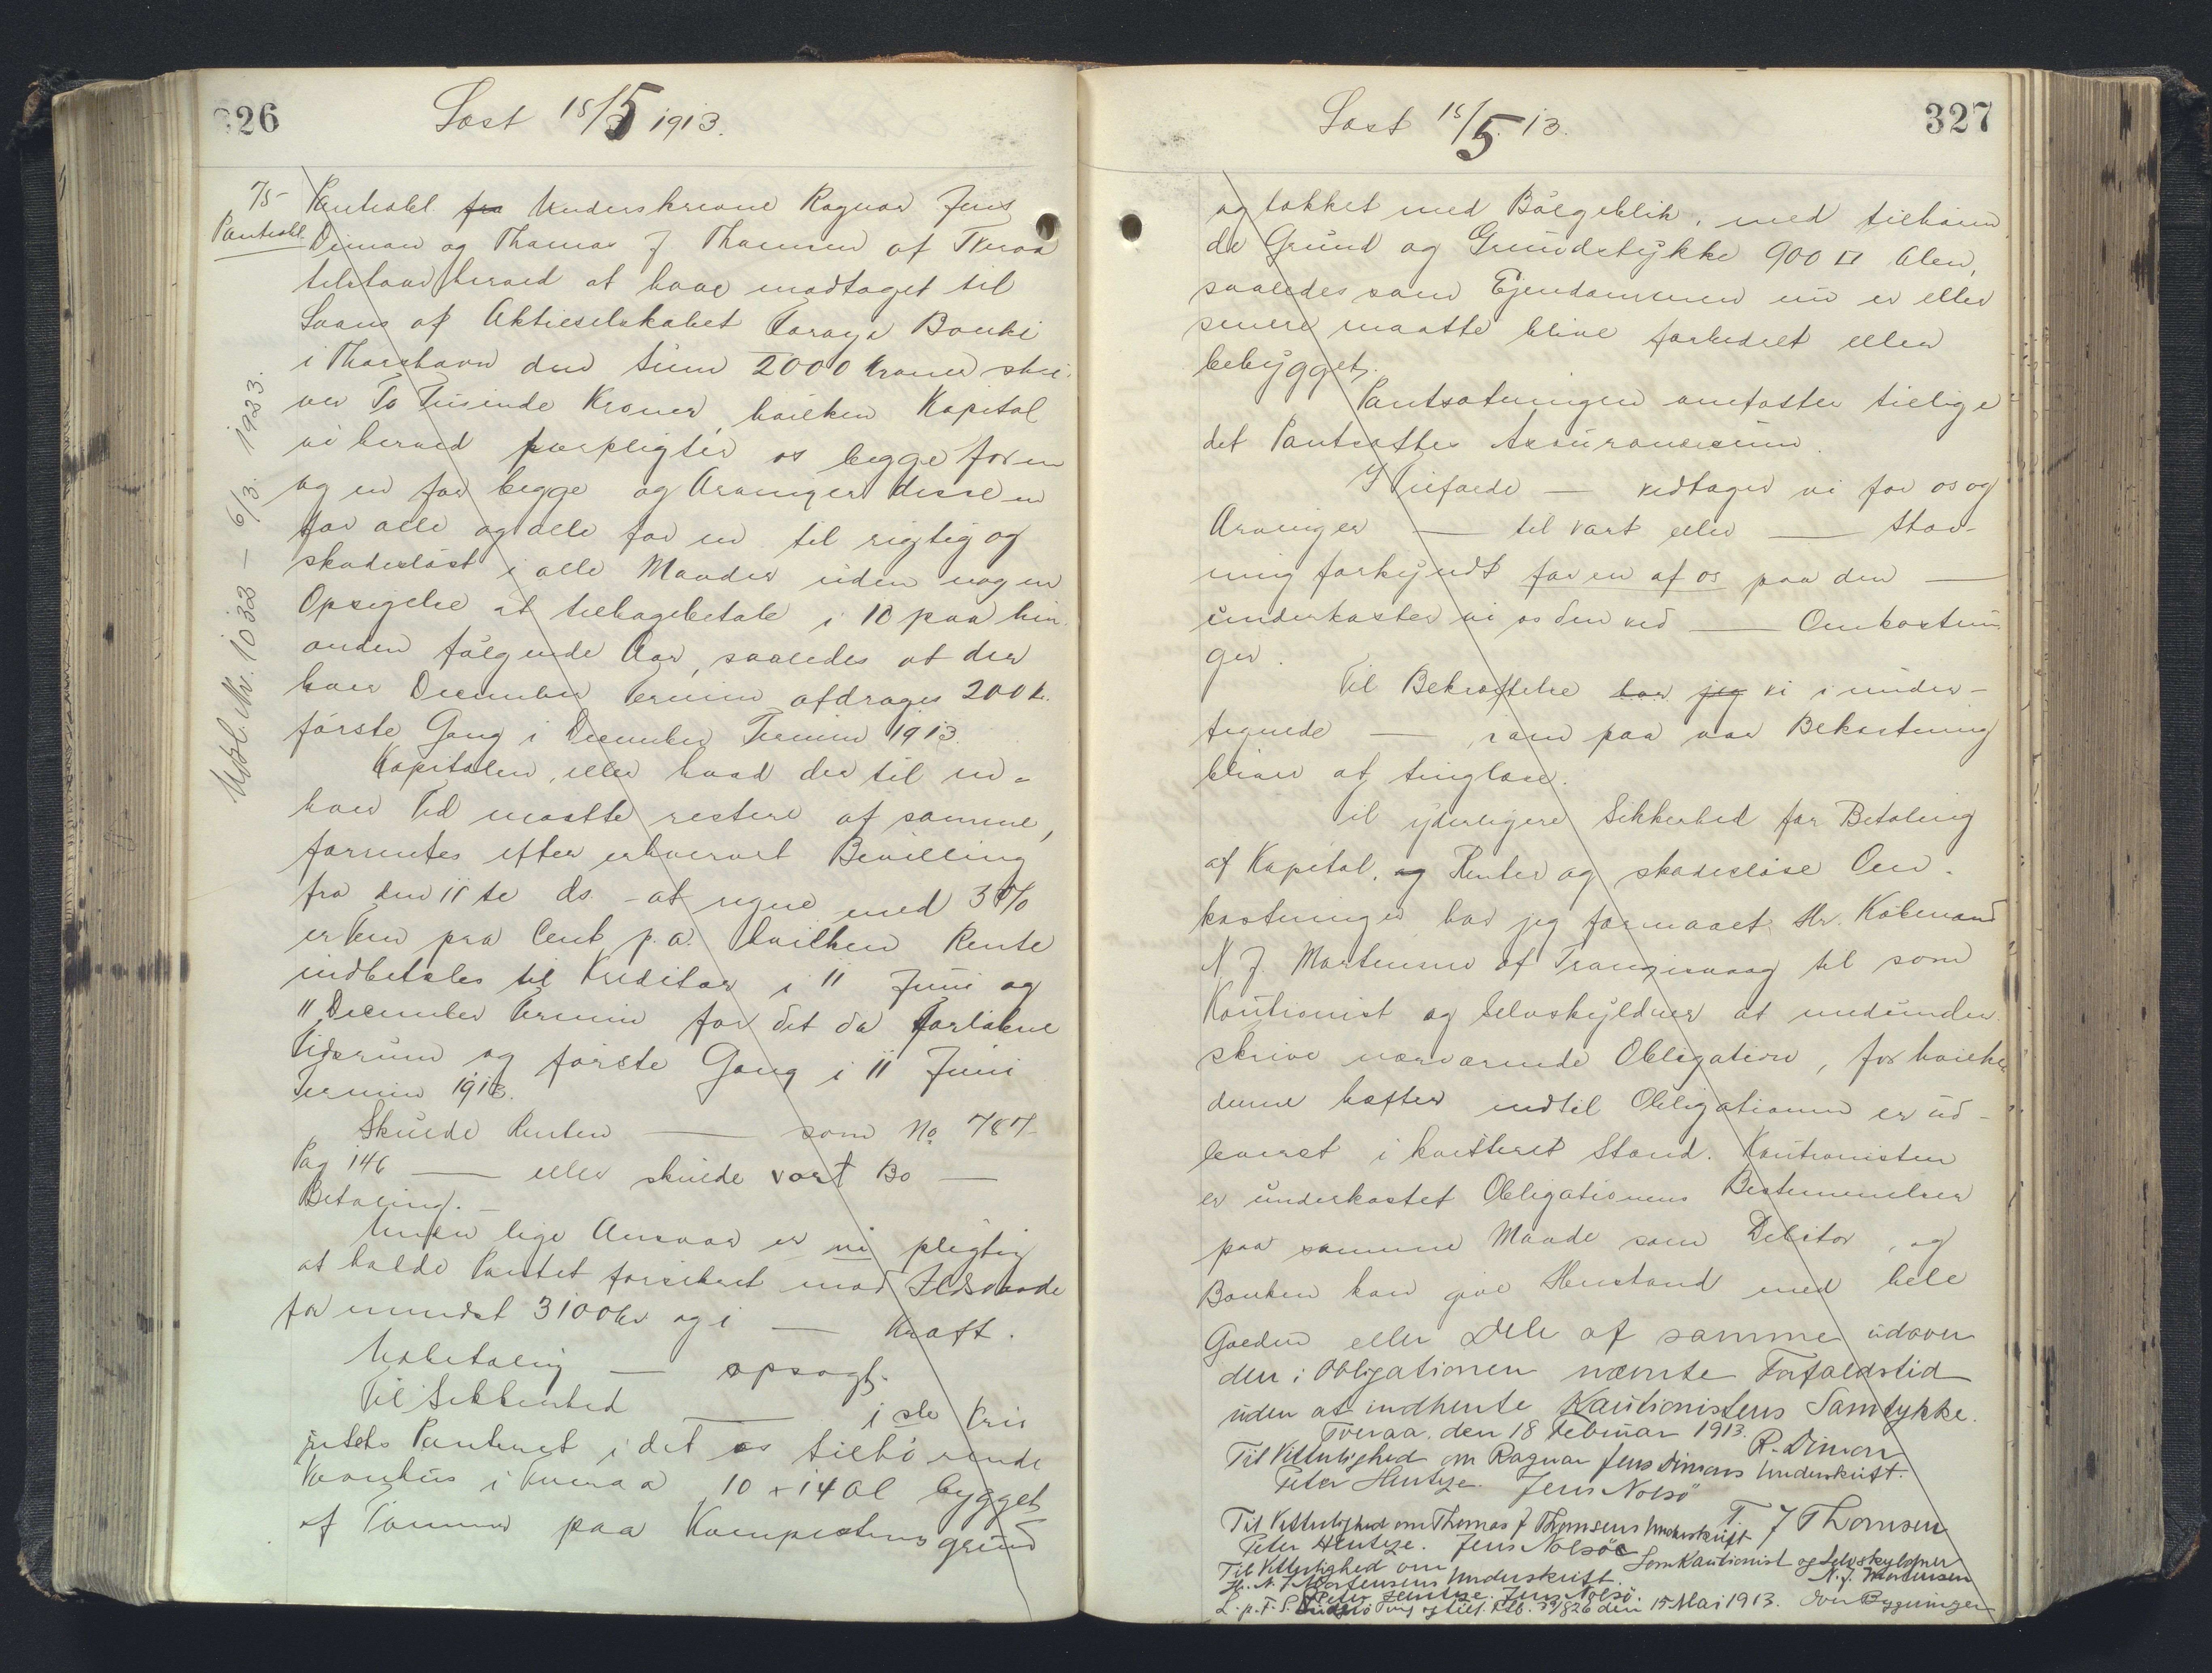 326
Læst 15/5 1913.
75
Panteobl.
Udsl. Nr. 1032 — 6/3. 1923.
Panteobl fra Underskrevne Ragnar Jens
Dimon og Thomas J Thomsen af Tveraa
tilstaar herved at have modtaget til
Laans af Aktieselskabet Føroya Banki
i Thorshavn den Sum 2000 Kroner skri-
ver To Tusinde Kroner, hvilken Kapital
vi herved forpligter os begge for en
og en for begge og Arvinger disse en
for alle og alle for en til rigtig og
skadesløst i alle Maader uden nogen
Opsigelse at tilbagebetale i 10 paa hin
anden følgende Aar, saaledes at der
hver December Termin afdrages 200 k.
første Gang i December Termin 1913.
Kapitalen, eller hvad der til en-
hver Tid maatte restere af samme,
forrentes efter erhvervet Bevilling
fra den 11te ds. at regne med
pro Cent p.a. hvilken Rente
indbetales til Kreditor i 11 Juni og
11 December Termin for det da forløbne
Tidsrum og første Gang i 11 Juni
Termin 1913.
Skulde Renten — som No 787
Pag 146 — eller skulde vort Bo —
Betaling. —
Under lige Ansvar er vi pligtig
at holde Pantet forsikret mod Ildsvaade
for mindst 3100 Kr og i — Kraft.
Udbetaling — opsagt.
Til Sikkerhed — 1ste Prio
ritets Panteret i det os tilhørende
Vaanhus i Tveraa 10 x 14 Al bygget
af Tømmer paa Kampestensgrund
327
Læst 15/5. 13.
og takket med Bølgeblik, med tilhøren
de Grund og Grundstykke 900 □ Alen,
saaledes som Ejendommen nu er eller
senere maatte blive forbedret eller
bebygget.
Pantsætningen omfatter tillige
det Pantsattes Assurancesum.
I Tilfælde — vedtager vi for os og
Arvinger — til vort eller — Stæv-
ning forkyndt for en af os paa den —
underkaster vi os den ved — Omkostnin
ger.
Til Bekræftelse har jeg vi i under-
tegnede — som paa vor Bekostning
bliver at tinglæse.
Til yderligere Sikkerhed for Betaling
af Kapital, og Renter og skadesløse Om-
kostninger har jeg formaaet Hr. Købmand
N. J. Mortensen af Trangisvaag til som
Kautionist og Selvskyldner at medunder
skrive nærværende Obligation, for hvilke
denne hæfter indtil Obligationen er ud-
leveret i kvitteret Stand. Kautionisten
er underkastet Obligationens Bestemmelser
paa samme Maade som Debitor, og
Banken kan give Henstand med hele
Gælden eller Dele af samme udover
den i Obligationen nævnte Forfaldstid
uden at indhente Kautionistens Samtykke.
Tveraa, den 18 Februar 1913.
R. Dimon
Til Vitterlighed om Ragnar Jens Dimons Underskrift.
Peter Hentze. Jens Nolsö
T. J Thomsen
Til Vitterlighed om Thomas J Thomsens Underskrift
Peter Hentze. Jens Nolsöe
Som Kautionist og Selvskyldner
N. J. Mortensen
Til Vitterlighed om
Hr. N. J Mortensens Underskrift.
Peter Hentze. Jens Nolsö.
L. p. F. S. Suderø Ting 15 Mai 1913. Over Bygningen